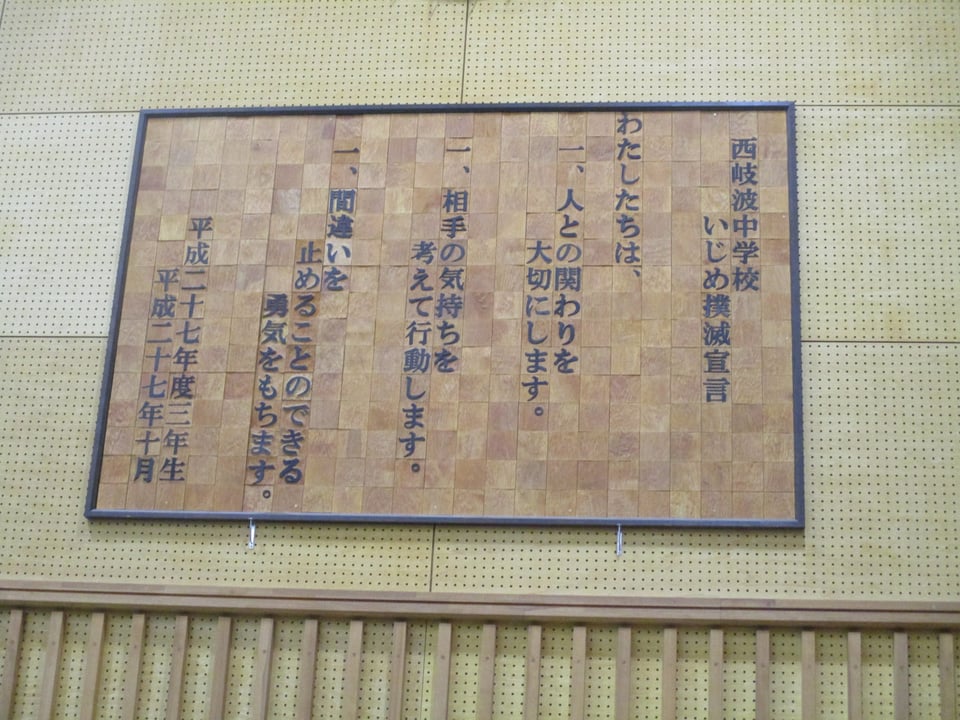 西岐波中学校
いじめ撲滅宣言
わたしたちは、
一、人との関わりを
大切にします。
一、相手の気持ちを
考えて行動します。
一、間違いを
止めることのできる
勇気をもちます。
平成二十七年度三年生
平成二十七年十月